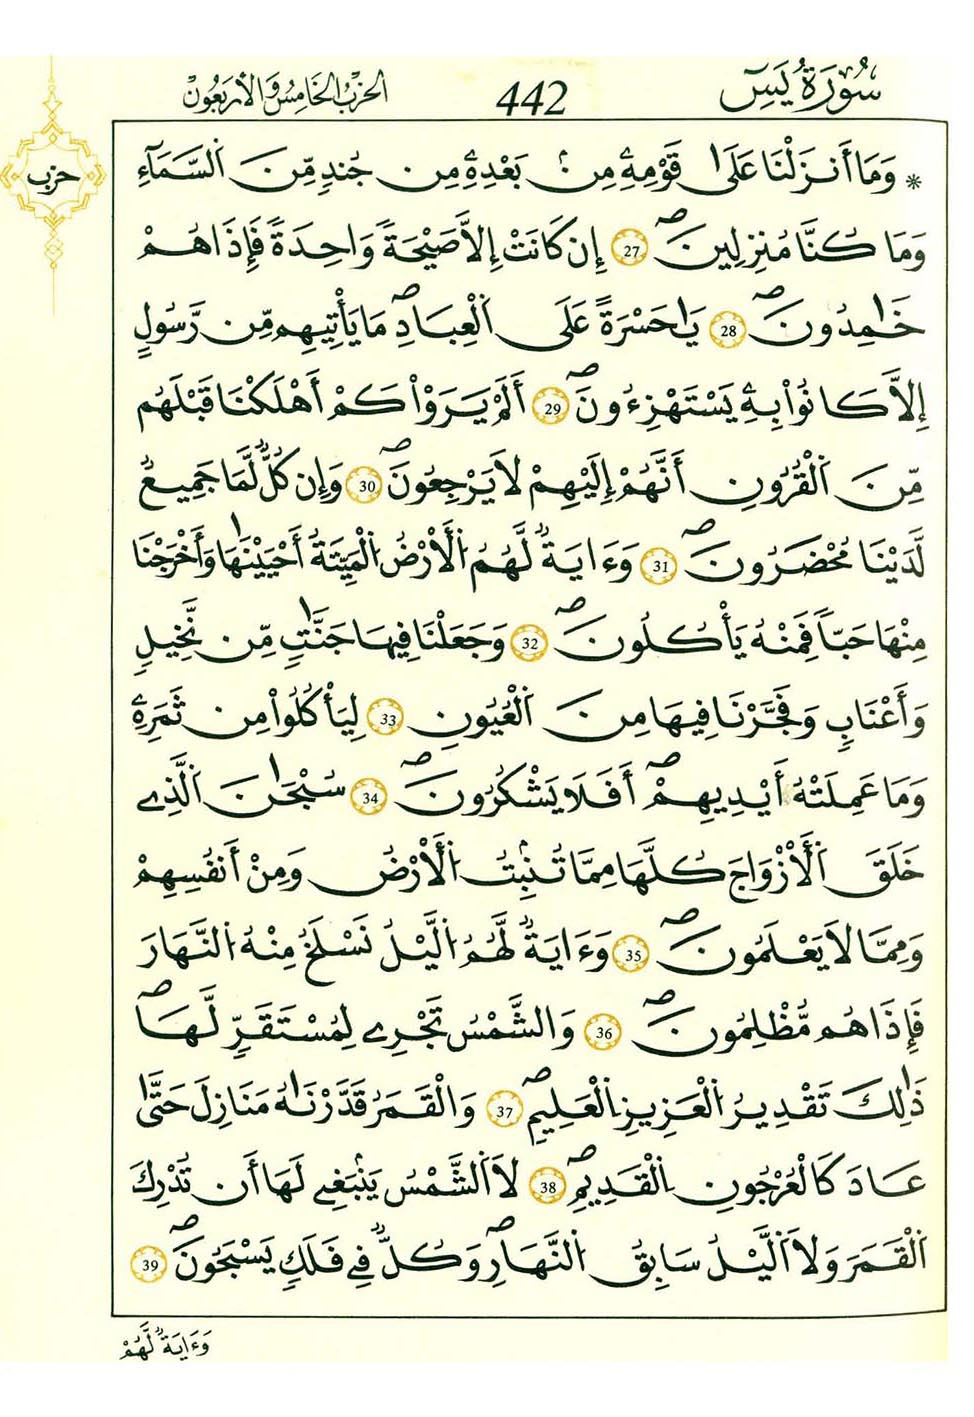 سُورَةُ يَسِٓ
442
الحِزْبُ الخَامِسُ وَالأَرْبَعُونَ
حزب
* وَمَا أَنزَلْنَا عَلَىٰ قَوْمِهِۦ مِنۢ بَعْدِهِۦ مِن جُندٍ مِّنَ اَ۬لسَّمَآءِ
وَمَا كُنَّا مُنزِلِينَۖ 27 إِن كَانَتِ اِلَّا صَيْحَةٗ وَٰحِدَةٗ فَإِذَا هُمْ
خَٰمِدُونَۖ 28 يَٰحَسْرَةً عَلَى اَ۬لْعِبَادِۖ مَا يَأْتِيهِم مِّن رَّسُولٍ
اِلَّا كَانُواْ بِهِۦ يَسْتَهْزِءُونَۖ 29 أَلَمْ يَرَوْاْ كَمْ أَهْلَكْنَا قَبْلَهُم
مِّنَ اَ۬لْقُرُونِ أَنَّهُمْ إِلَيْهِمْ لَا يَرْجِعُونَۖ 30 وَإِن كُلّٞ لَّمَا جَمِيعٞ
لَّدَيْنَا مُحْضَرُونَۖ 31 وَءَايَةٞ لَّهُمُ اُ۬لْأَرْضُ اُ۬لْمَيِّتَةُ أَحْيَيْنَٰهَا وَأَخْرَجْنَا
مِنْهَا حَبّاٗ فَمِنْهُ يَأْكُلُونَۖ 32 وَجَعَلْنَا فِيهَا جَنَّٰتٖ مِّن نَّخِيلٖ
وَأَعْنَٰبٖ وَفَجَّرْنَا فِيهَا مِنَ اَ۬لْعُيُونِ 33 لِيَأْكُلُواْ مِن ثَمَرِهِۦ
وَمَا عَمِلَتْهُ أَيْدِيهِمْۖ أَفَلَا يَشْكُرُونَۖ 34 سُبْحَٰنَ اَ۬لَّذِے
خَلَقَ اَ۬لْأَزْوَٰجَ كُلَّهَا مِمَّا تُنۢبِتُ اُ۬لْأَرْضُ وَمِنْ أَنفُسِهِمْ
وَمِمَّا لَا يَعْلَمُونَۖ 35 وَءَايَةٞ لَّهُمُ اُ۬ليْلُ نَسْلَخُ مِنْهُ اُ۬لنَّهَارَ
فَإِذَا هُم مُّظْلِمُونَۖ 36 وَالشَّمْسُ تَجْرِے لِمُسْتَقَرّٖ لَّهَاۖ
ذَٰلِكَ تَقْدِيرُ اُ۬لْعَزِيزِ اِ۬لْعَلِيمِۖ 37 وَالْقَمَرُ قَدَّرْنَٰهُ مَنَازِلَ حَتَّىٰ
عَادَ كَالْعُرْجُونِ اِ۬لْقَدِيمِۖ 38 لَا اَ۬لشَّمْسُ يَنۢبَغِے لَهَا أَن تُدْرِكَ
اَ۬لْقَمَرَ وَلَا اَ۬ليْلُ سَابِقُ اُ۬لنَّهَارِۖ وَكُلّٞ فِے فَلَكٖ يَسْبَحُونَۖ 39
وَءَايَةٞ لَّهُمْ